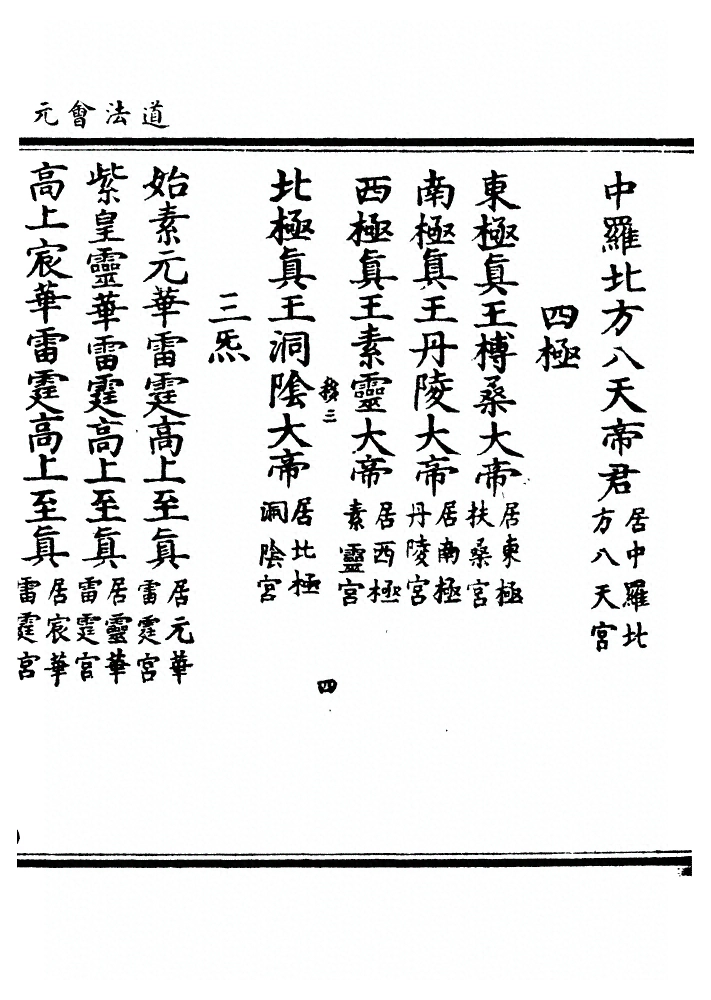 道法會元
中羅北方八天帝君居中羅北方八天宮
四極
東極眞王榑桑大帝居東極扶桑宮
南極眞王丹陵大帝居南極丹陵宮
西極眞王素靈大帝居西極素靈宮
三
四
北極眞王洞陰大帝居北極洞陰宮
三炁
始素元華雷霆高上至眞居元華雷霆宮
紫皇靈華雷霆高上至眞居靈華雷霆宮
高上宸華雷霆高上至眞居宸華雷霆宮